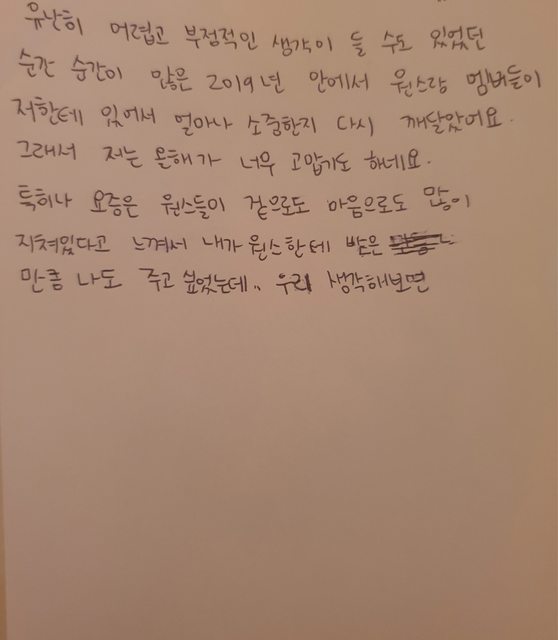 유난히 어렵고 부정적인 생각이 들 수도 있었던
순간 순간이 많은 2019년 안에서 원스랑 멤버들이
저한테 있어서 얼마나 소중한지 다시 깨달았어요.
그래서 저는 올해가 너무 고맙기도 하네요.
특히나 요즘은 원스들이 겉으로도 마음으로도 많이
지쳐있다고 느껴서 내가 원스한테 받은
만큼 나도 주고 싶었는데.. 우리 생각해보면